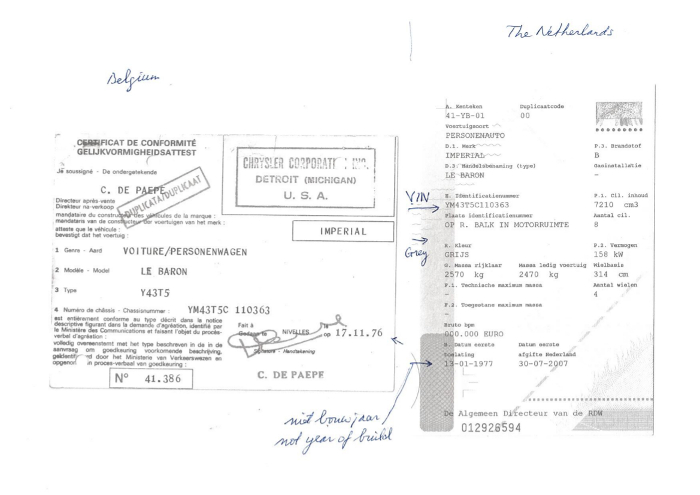 Belgium
CERTIFICAT DE CONFORMITÉ
GELIJKVORMIGHEIDSATTEST
Je soussigné - De ondergetekende
C. DE PAEPE
DUPLICATA/DUPLICAAT
Directeur après-vente
Direkteur na-verkoop
mandataire du constructeur des véhicules de la marque :
mandataris van de constructeur der voertuigen van het merk :
atteste que le véhicule :
bevestigt dat het voertuig :
CHRYSLER CORPORATI INC.
DETROIT (MICHIGAN)
U. S. A.
IMPERIAL
1 Genre - Aard VOITURE/PERSONENWAGEN
2 Modèle - Model LE BARON
3 Type Y43T5
4 Numéro de châssis - Chassisnummer : YM43T5C 110363
est entièrement conforme au type décrit dans la notice
descriptive figurant dans la demande d'agréation, identifié par
le Ministère des Communications et faisant l'objet du procès-
verbal d'agréation :
volledig overeenstemt met het type beschreven in de in de
aanvraag om goedkeuring voorkomende beschrijving,
door het Ministerie van Verkeerswezen en
opgenomen in proces-verbaal van goedkeuring :
N° 41.386
Fait à
NIVELLES le
op 17.11.76
Handtekening
C. DE PAEPE
niet bouwjaar
not year of build
The Netherlands
A. Kenteken Duplicaatcode
41-YB-01 00
Voertuigsoort
PERSONENAUTO
D.1. Merk P.3. Brandstof
IMPERIAL B
D.3. Handelsbenaming (type) Gasinstallatie
LE BARON -
VIN
E. Identificatienummer P.1. Cil. inhoud
YM43T5C110363 7210 cm3
Plaats identificatienummer Aantal cil.
OP R. BALK IN MOTORRUIMTE 8
Grey
R. Kleur P.2. Vermogen
GRIJS 158 kW
G. Massa rijklaar Massa ledig voertuig Wielbasis
2570 kg 2470 kg 314 cm
F.1. Technische maximum massa Aantal wielen
- 4
F.2. Toegestane maximum massa
-
Bruto bpm
000.000 EURO
B. Datum eerste Datum eerste
toelating afgifte Nederland
13-01-1977 30-07-2007
De Algemeen Directeur van de RDW
012926594